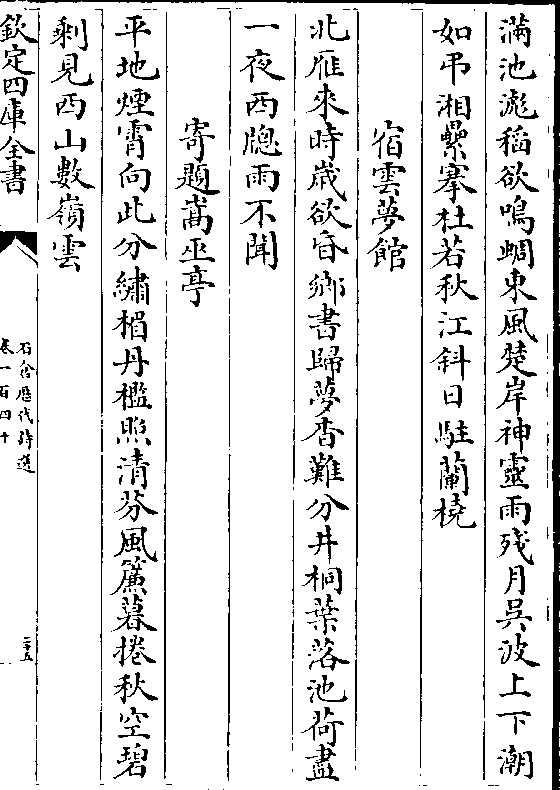 滿池滮稻欲鳴蜩東風楚岸神靈雨殘月呉波上下潮
如弔湘纍搴杜若秋江斜日駐蘭橈
宿雲夢館
北雁來時歳欲昏鄉書歸夢杳難分井桐葉落池荷盡
一夜西牕雨不聞
寄題嵩巫亭
平地煙霄向此分繡楣丹檻照清芬風簾暮捲秋空碧
剩見西山數嶺雲
欽定四庫全書
石倉歷代詩選
卷一百四十
二十五